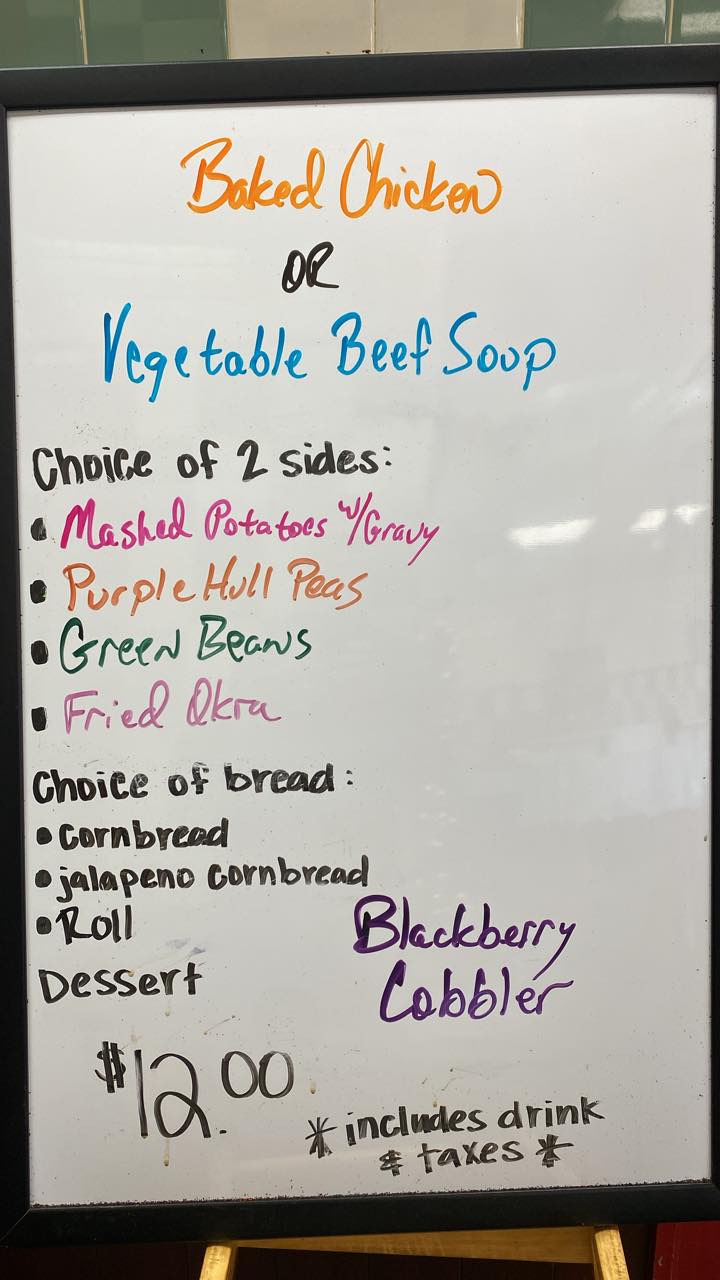 Baked Chicken
OR
Vegetable Beef Soup
Choice of 2 sides:
• Mashed Potatoes w/Gravy
• Purple Hull Peas
• Green Beans
• Fried Okra
Choice of bread:
• cornbread
• jalapeno cornbread
• Roll
Dessert
Blackberry
Cobbler
$12.00
* includes drink
& taxes *